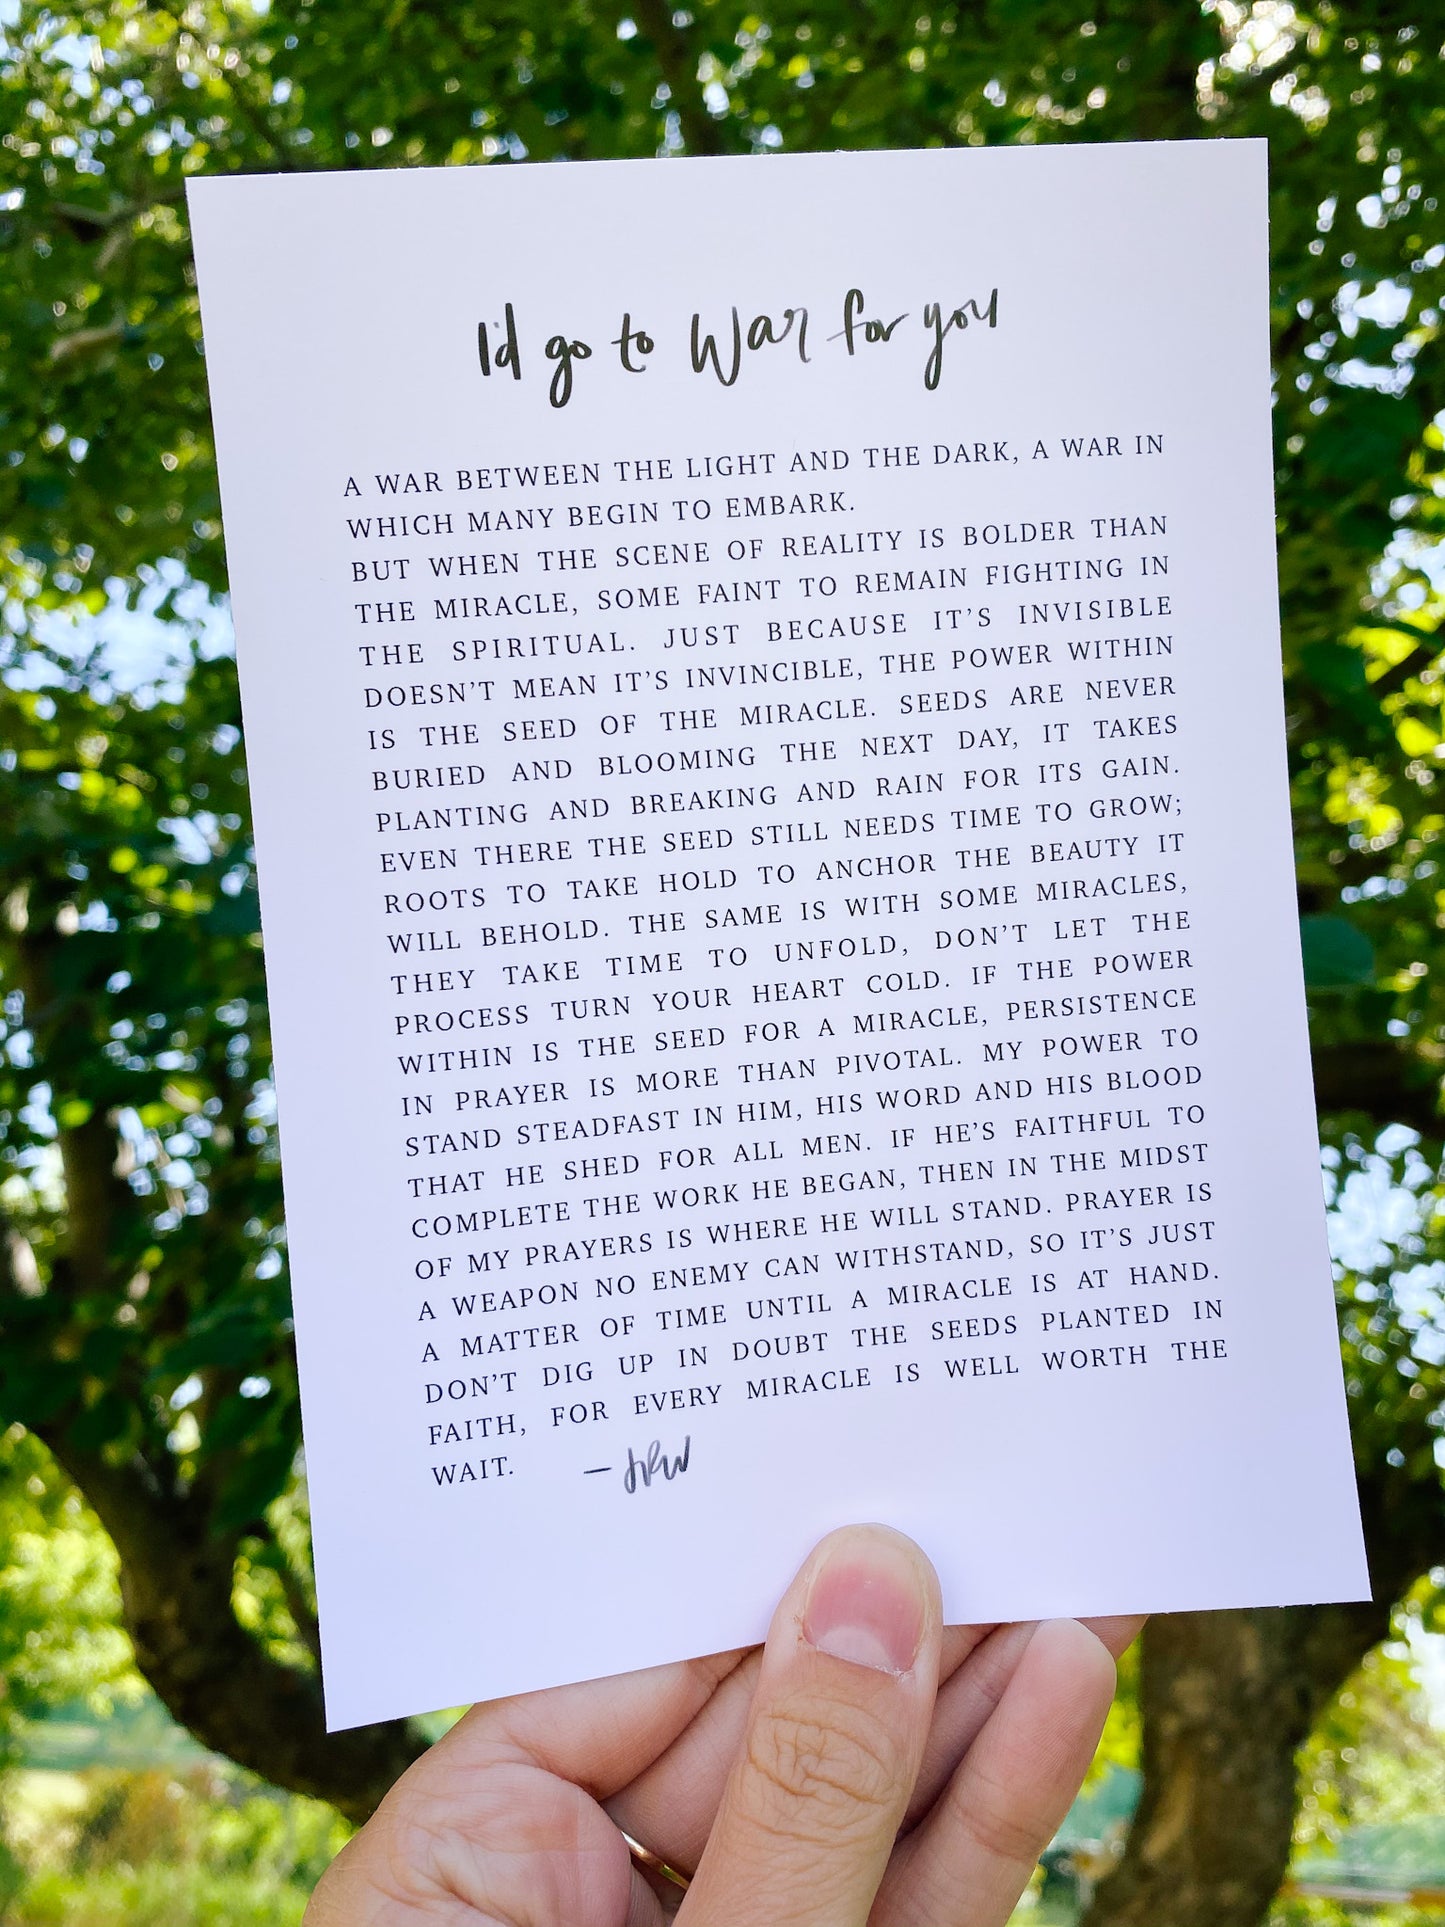 I'd go to War for you
A WAR BETWEEN THE LIGHT AND THE DARK, A WAR IN
WHICH MANY BEGIN TO EMBARK.
BUT WHEN THE SCENE OF REALITY IS BOLDER THAN
THE MIRACLE, SOME FAINT TO REMAIN FIGHTING IN
THE SPIRITUAL. JUST BECAUSE IT'S INVISIBLE
DOESN'T MEAN IT'S INVINCIBLE, THE POWER WITHIN
IS THE SEED OF THE MIRACLE. SEEDS ARE NEVER
BURIED AND BLOOMING THE NEXT DAY, IT TAKES
PLANTING AND BREAKING AND RAIN FOR ITS GAIN.
EVEN THERE THE SEED STILL NEEDS TIME TO GROW;
ROOTS TO TAKE HOLD TO ANCHOR THE BEAUTY IT
WILL BEHOLD. THE SAME IS WITH SOME MIRACLES,
THEY TAKE TIME TO UNFOLD, DON'T LET THE
PROCESS TURN YOUR HEART COLD. IF THE POWER
WITHIN IS THE SEED FOR A MIRACLE, PERSISTENCE
IN PRAYER IS MORE THAN PIVOTAL. MY POWER TO
STAND STEADFAST IN HIM, HIS WORD AND HIS BLOOD
THAT HE SHED FOR ALL MEN. IF HE'S FAITHFUL TO
COMPLETE THE WORK HE BEGAN, THEN IN THE MIDST
OF MY PRAYERS IS WHERE HE WILL STAND. PRAYER IS
A WEAPON NO ENEMY CAN WITHSTAND, SO IT'S JUST
A MATTER OF TIME UNTIL A MIRACLE IS AT HAND.
DON'T DIG UP IN DOUBT THE SEEDS PLANTED IN
FAITH, FOR EVERY MIRACLE IS WELL WORTH THE
WAIT. —